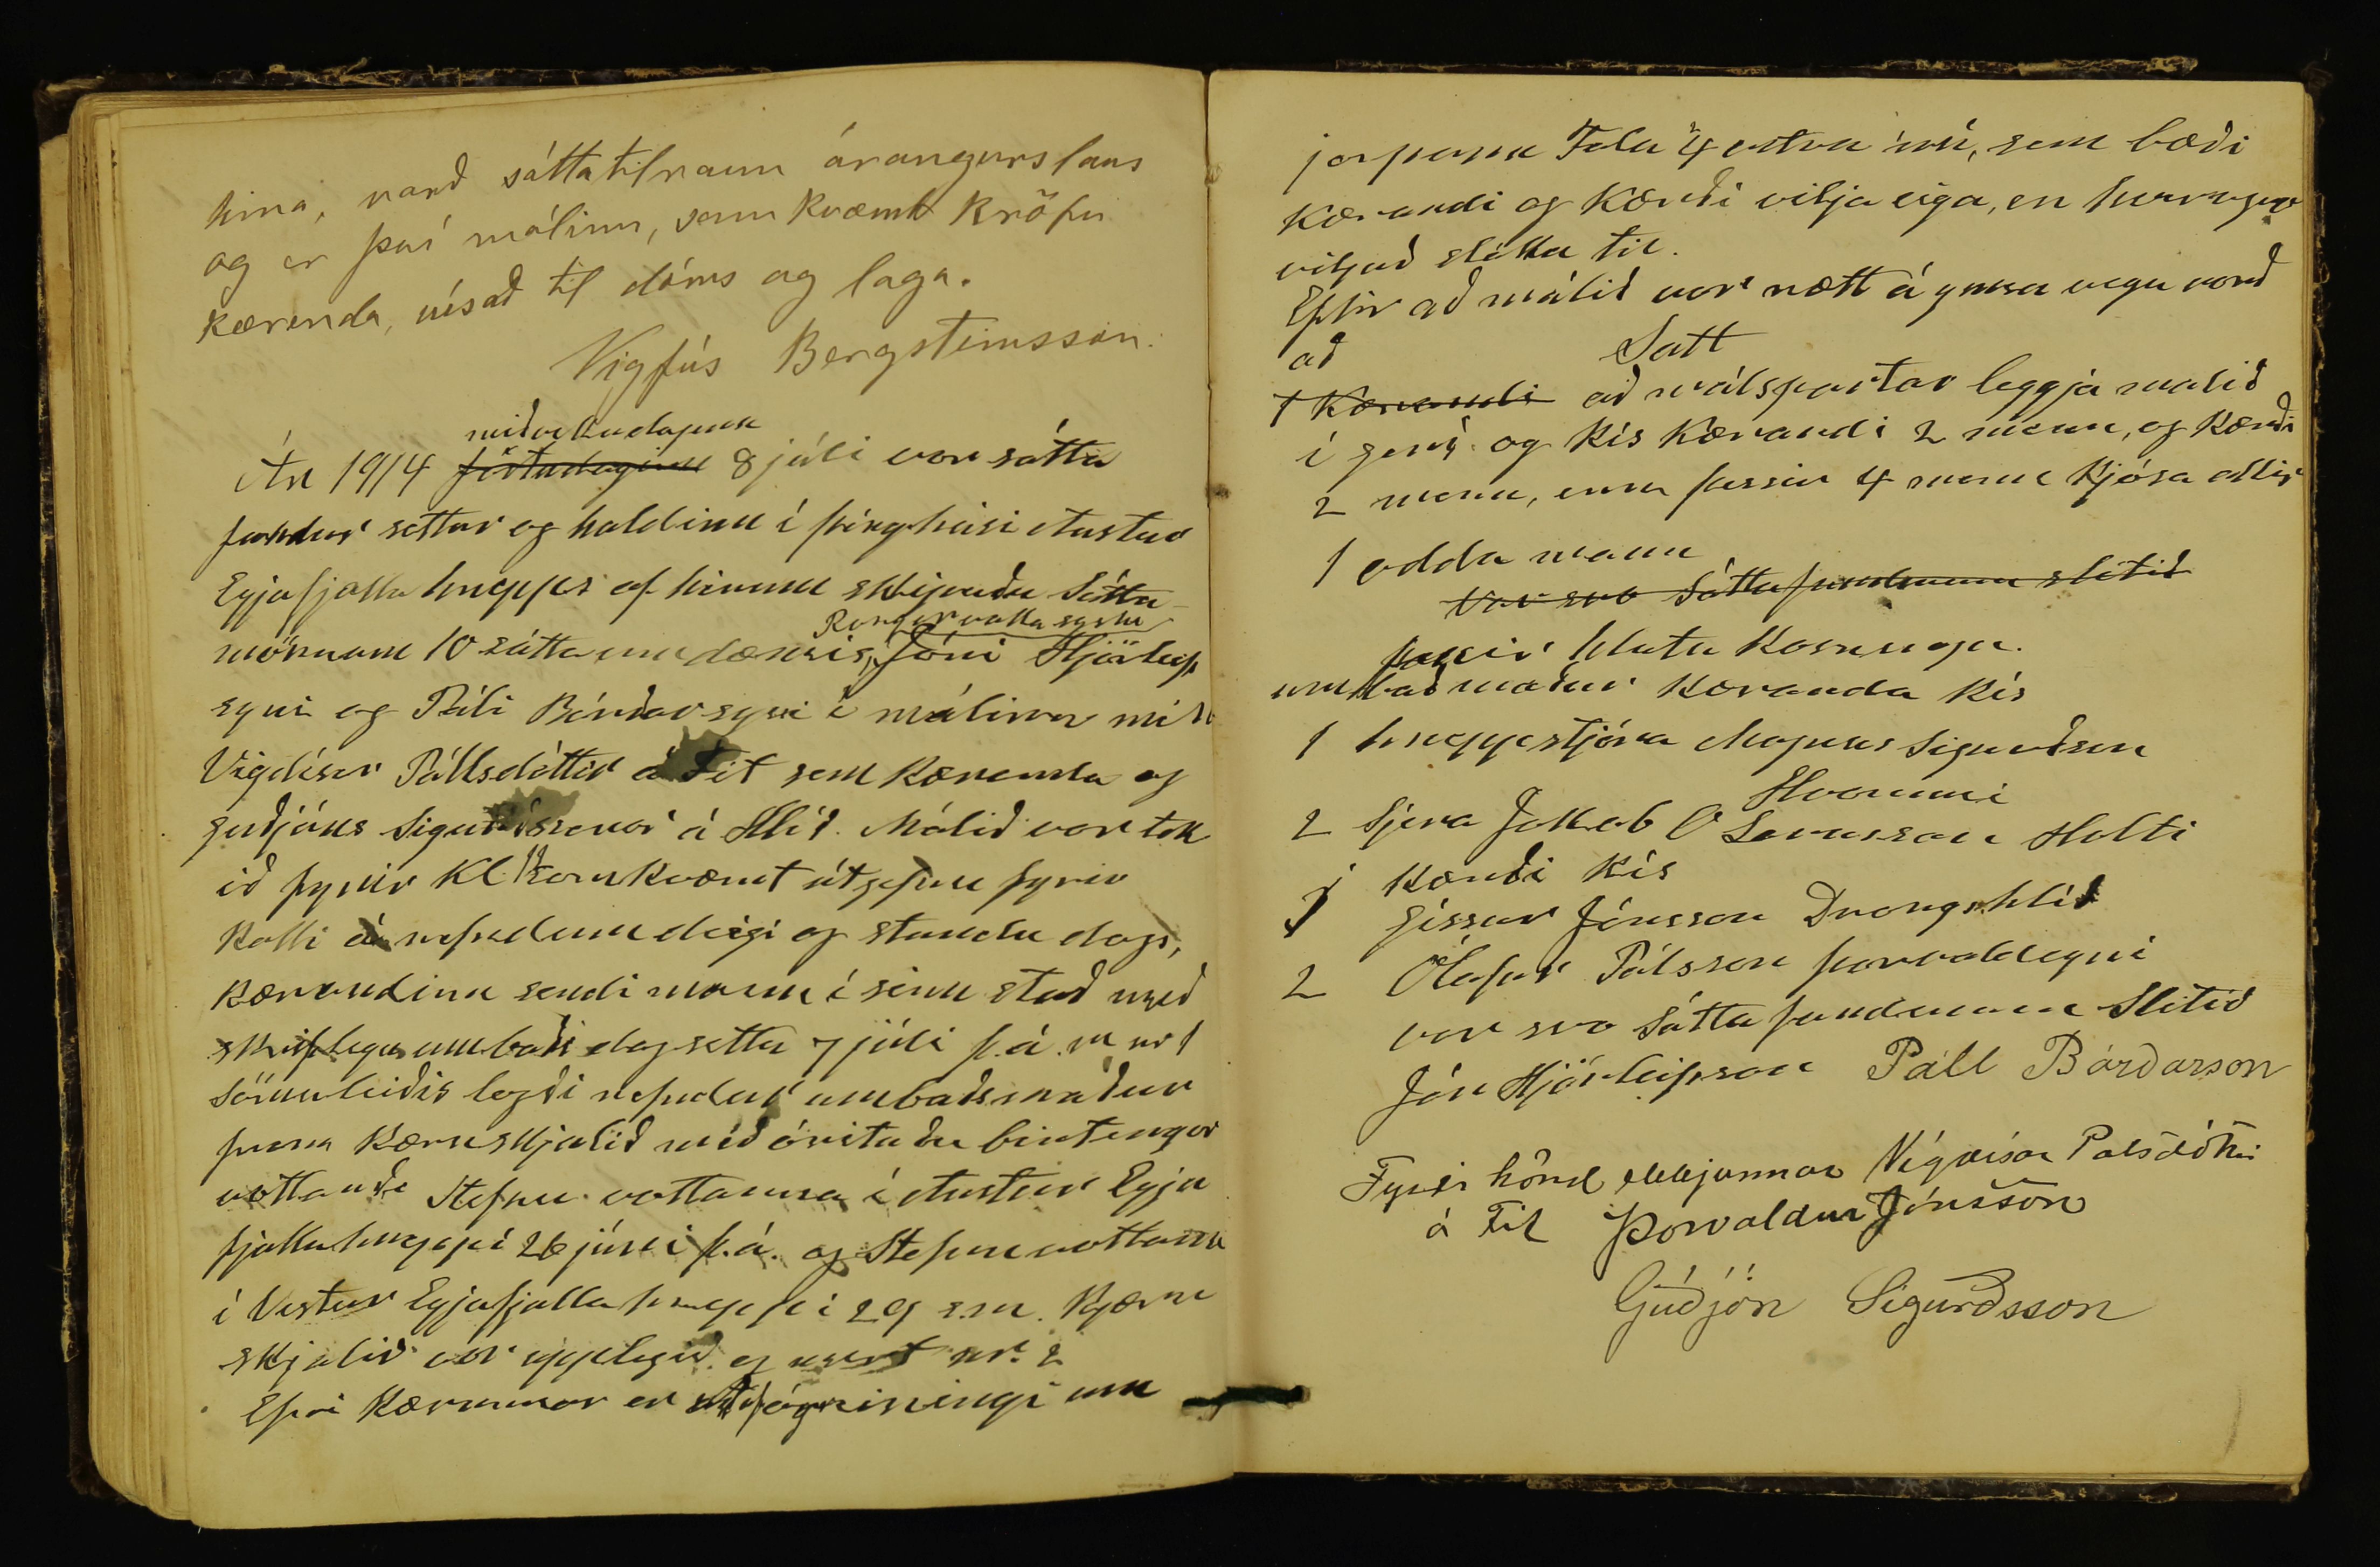 hina, varð sáttatilraun árangurslaus
og er því málinu, samkvæmt kröfu
kærenda, vísað til dóms og laga.
Vigfús Bergsteinsson.
miðvikudaginn
Ár 1914 föstudaginn 8 júlí var sátta
fundur settur og haldinn í þinghúsi Austur
Eyjafjalla hrepps af hinum skipuðu Sátta
Rangárvallasýslu
mönnum 10 sáttaumdæmis, Jóni Hjörleifs
syni og Páli Bárðarsyni í málinu milli
Vigdísar Pállsdóttir á Fit sem kæranda og
Guðjóns Sigurðssonar á Hlíð. Málið var tek
ið fyrir Kl 12 samkvæmt útgefnu fyrir
kalli á nefndum degi og stundu dags,
Kærandinn sendi mann í sinn stað með
skriflegu umboði dagsettu 7 júlí þ.á. nr 1
Sömuleiðis lagði nefndur umboðsmaður
fram Kæruskjalið með árituðu birtingar
vottorði Stefnu vottanna í Austur Eyja
fjallahreppi 26 júní þ.á. og Stefnuvottanna
í Vestur Eyjafjallahreppi 29 s.m. Kæru
skjalið var upplesið og merkt nr. 2
Efni Kærunnar er ágreiningi um
jarpann Fola 4 vetra nú, sem bæði
Kærandi og Kærði vilja eiga, en hvorugur
viljað slátta til.
Eptir að málið var rætt á ymsa vegu varð
að Satt
1 Kærandi að málspartar leggja málið
í gerð og kís Kærandi 2 menn, og Kærði
2 menn, enn þessir 4 menn kjósa allir
1 odda mann
Var svo Sáttafundinum slitið
þessir hlutu kosningu.
umboðmaður Kæranda kís
1 hreppstjóra Magnus Sigurðsson
Hvammi
2 Sjera Jakob O Lárusson Holti
Kærði kís
1 Gissur Jónsson Drangshlíð
2 Ólafur Pálsson Þorvaldseyri
var svo Sátta fundinum Slitið
Jón Hjörleifsson Páll Bárðarson
Fyrir hönd ekkjunnar Vigdísar Palsdóttir
á Fit Þorvaldur Jónsson
Guðjón Sigurðsson